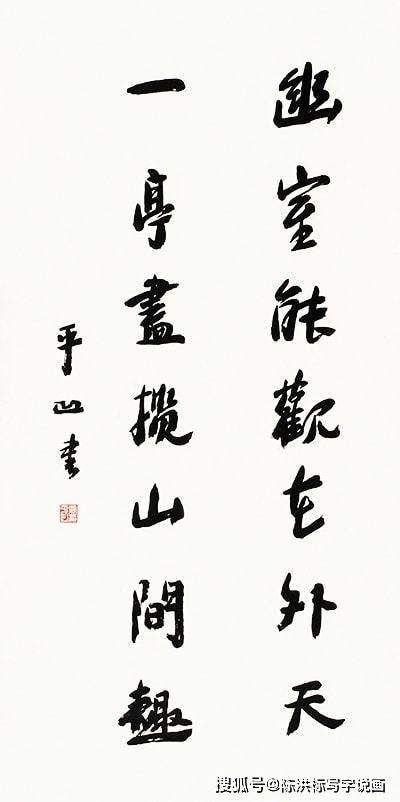 幽室能觀世外天
一亭盡攬山間趣
平凹書
搜狐号@陈洪标写字说画